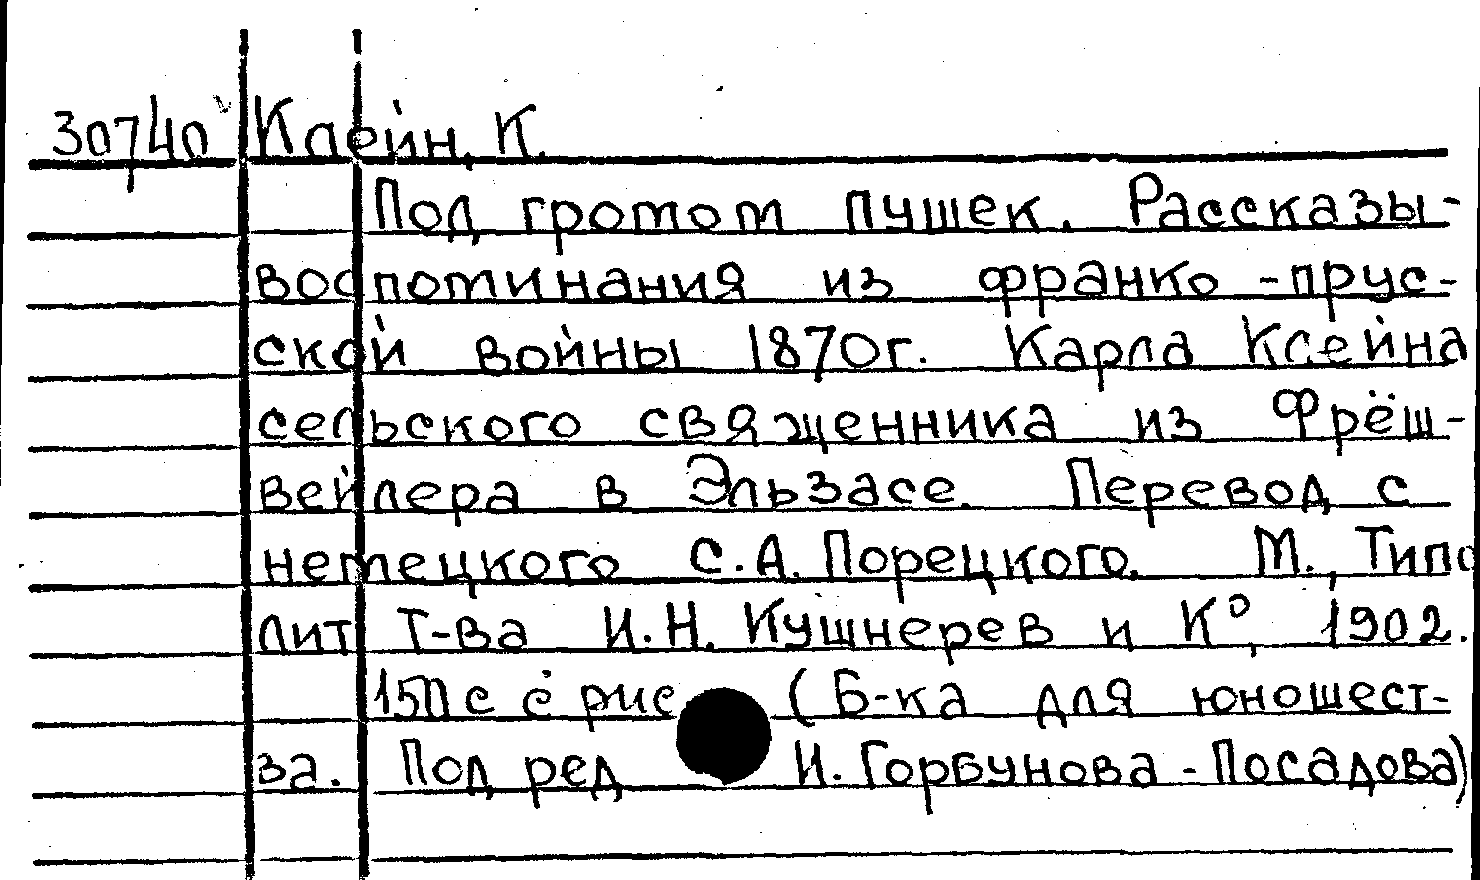 30740 Клейн, К.
Под громом пушек. Рассказы-
воспоминания из франко-прус-
ской войны 1870г. Карла Ксейна
сельского священника из Фрёш-
вейлера в Эльзасе. Перевод с
немецкого С.А. Порецкого. М., Типо
лит Т-ва И.Н. Кушнерев и К°, 1902.
150 с с рис (Б-ка для юношест-
ва. Под ред И. Горбунова-Посадова)